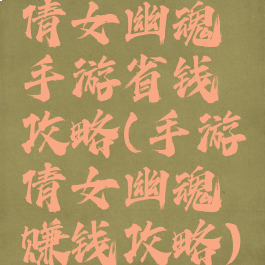 倩女幽魂
手游省钱
攻略(手游
倩女幽魂
赚钱攻略)